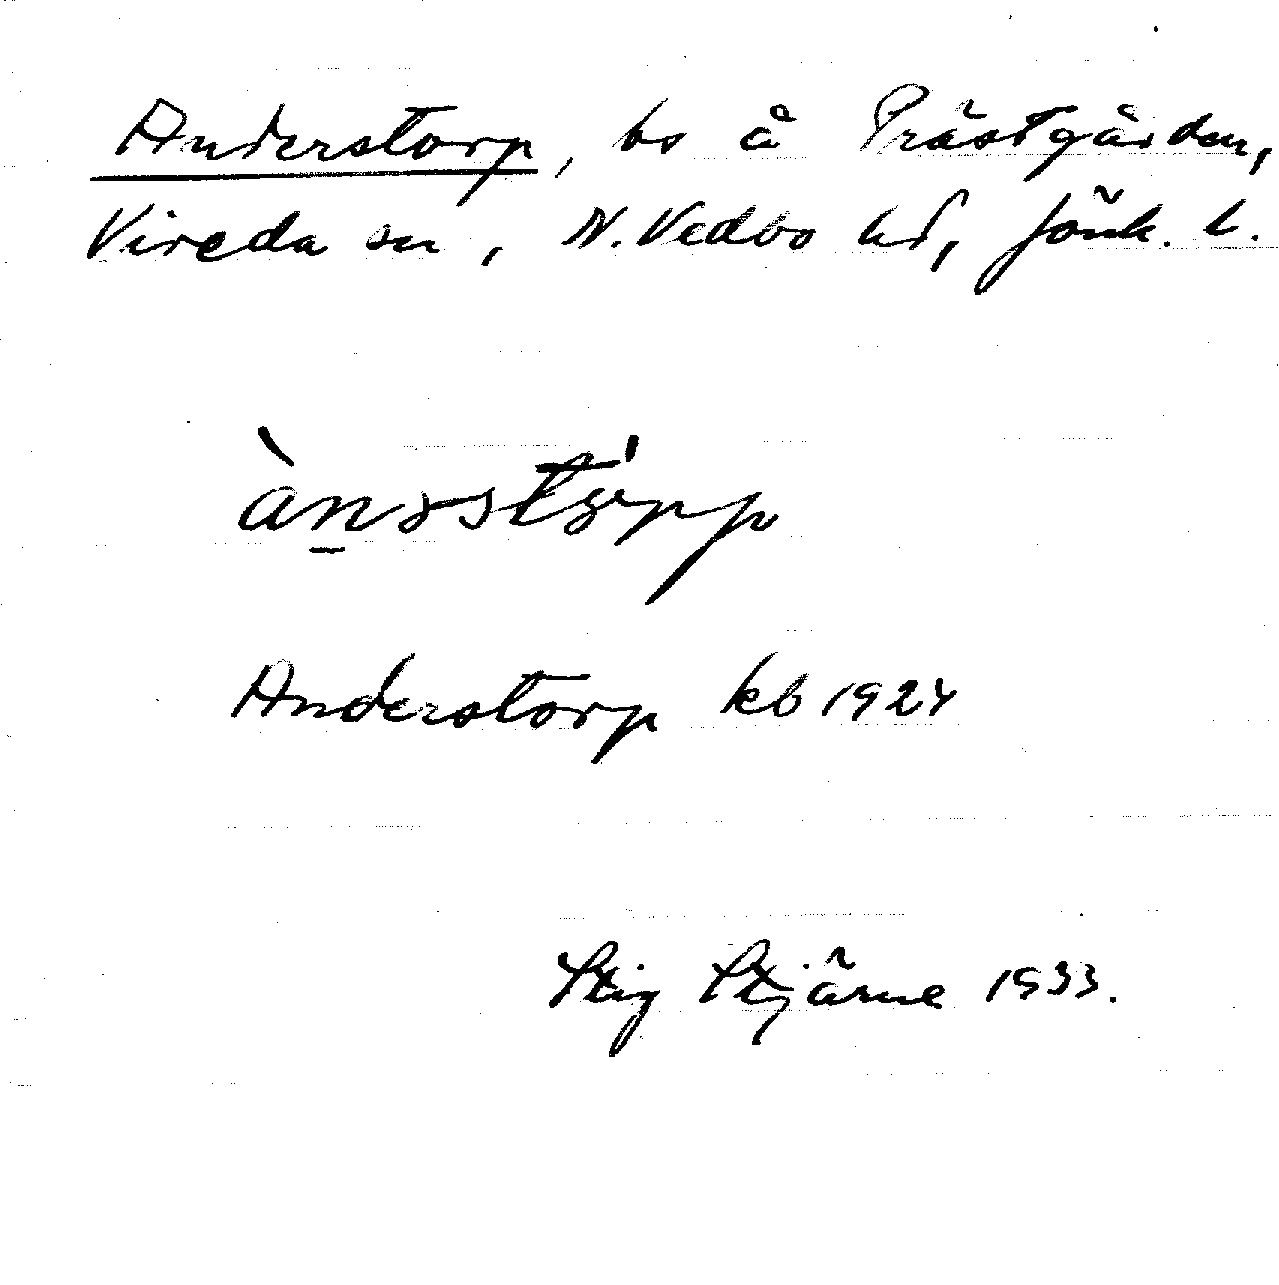 Anderstorp, bs å Prästgården,
Vireda sn, N. Vedbo hd, Jönk. l.
Anderstorp kb 1924
Stig Stjärne 1933.